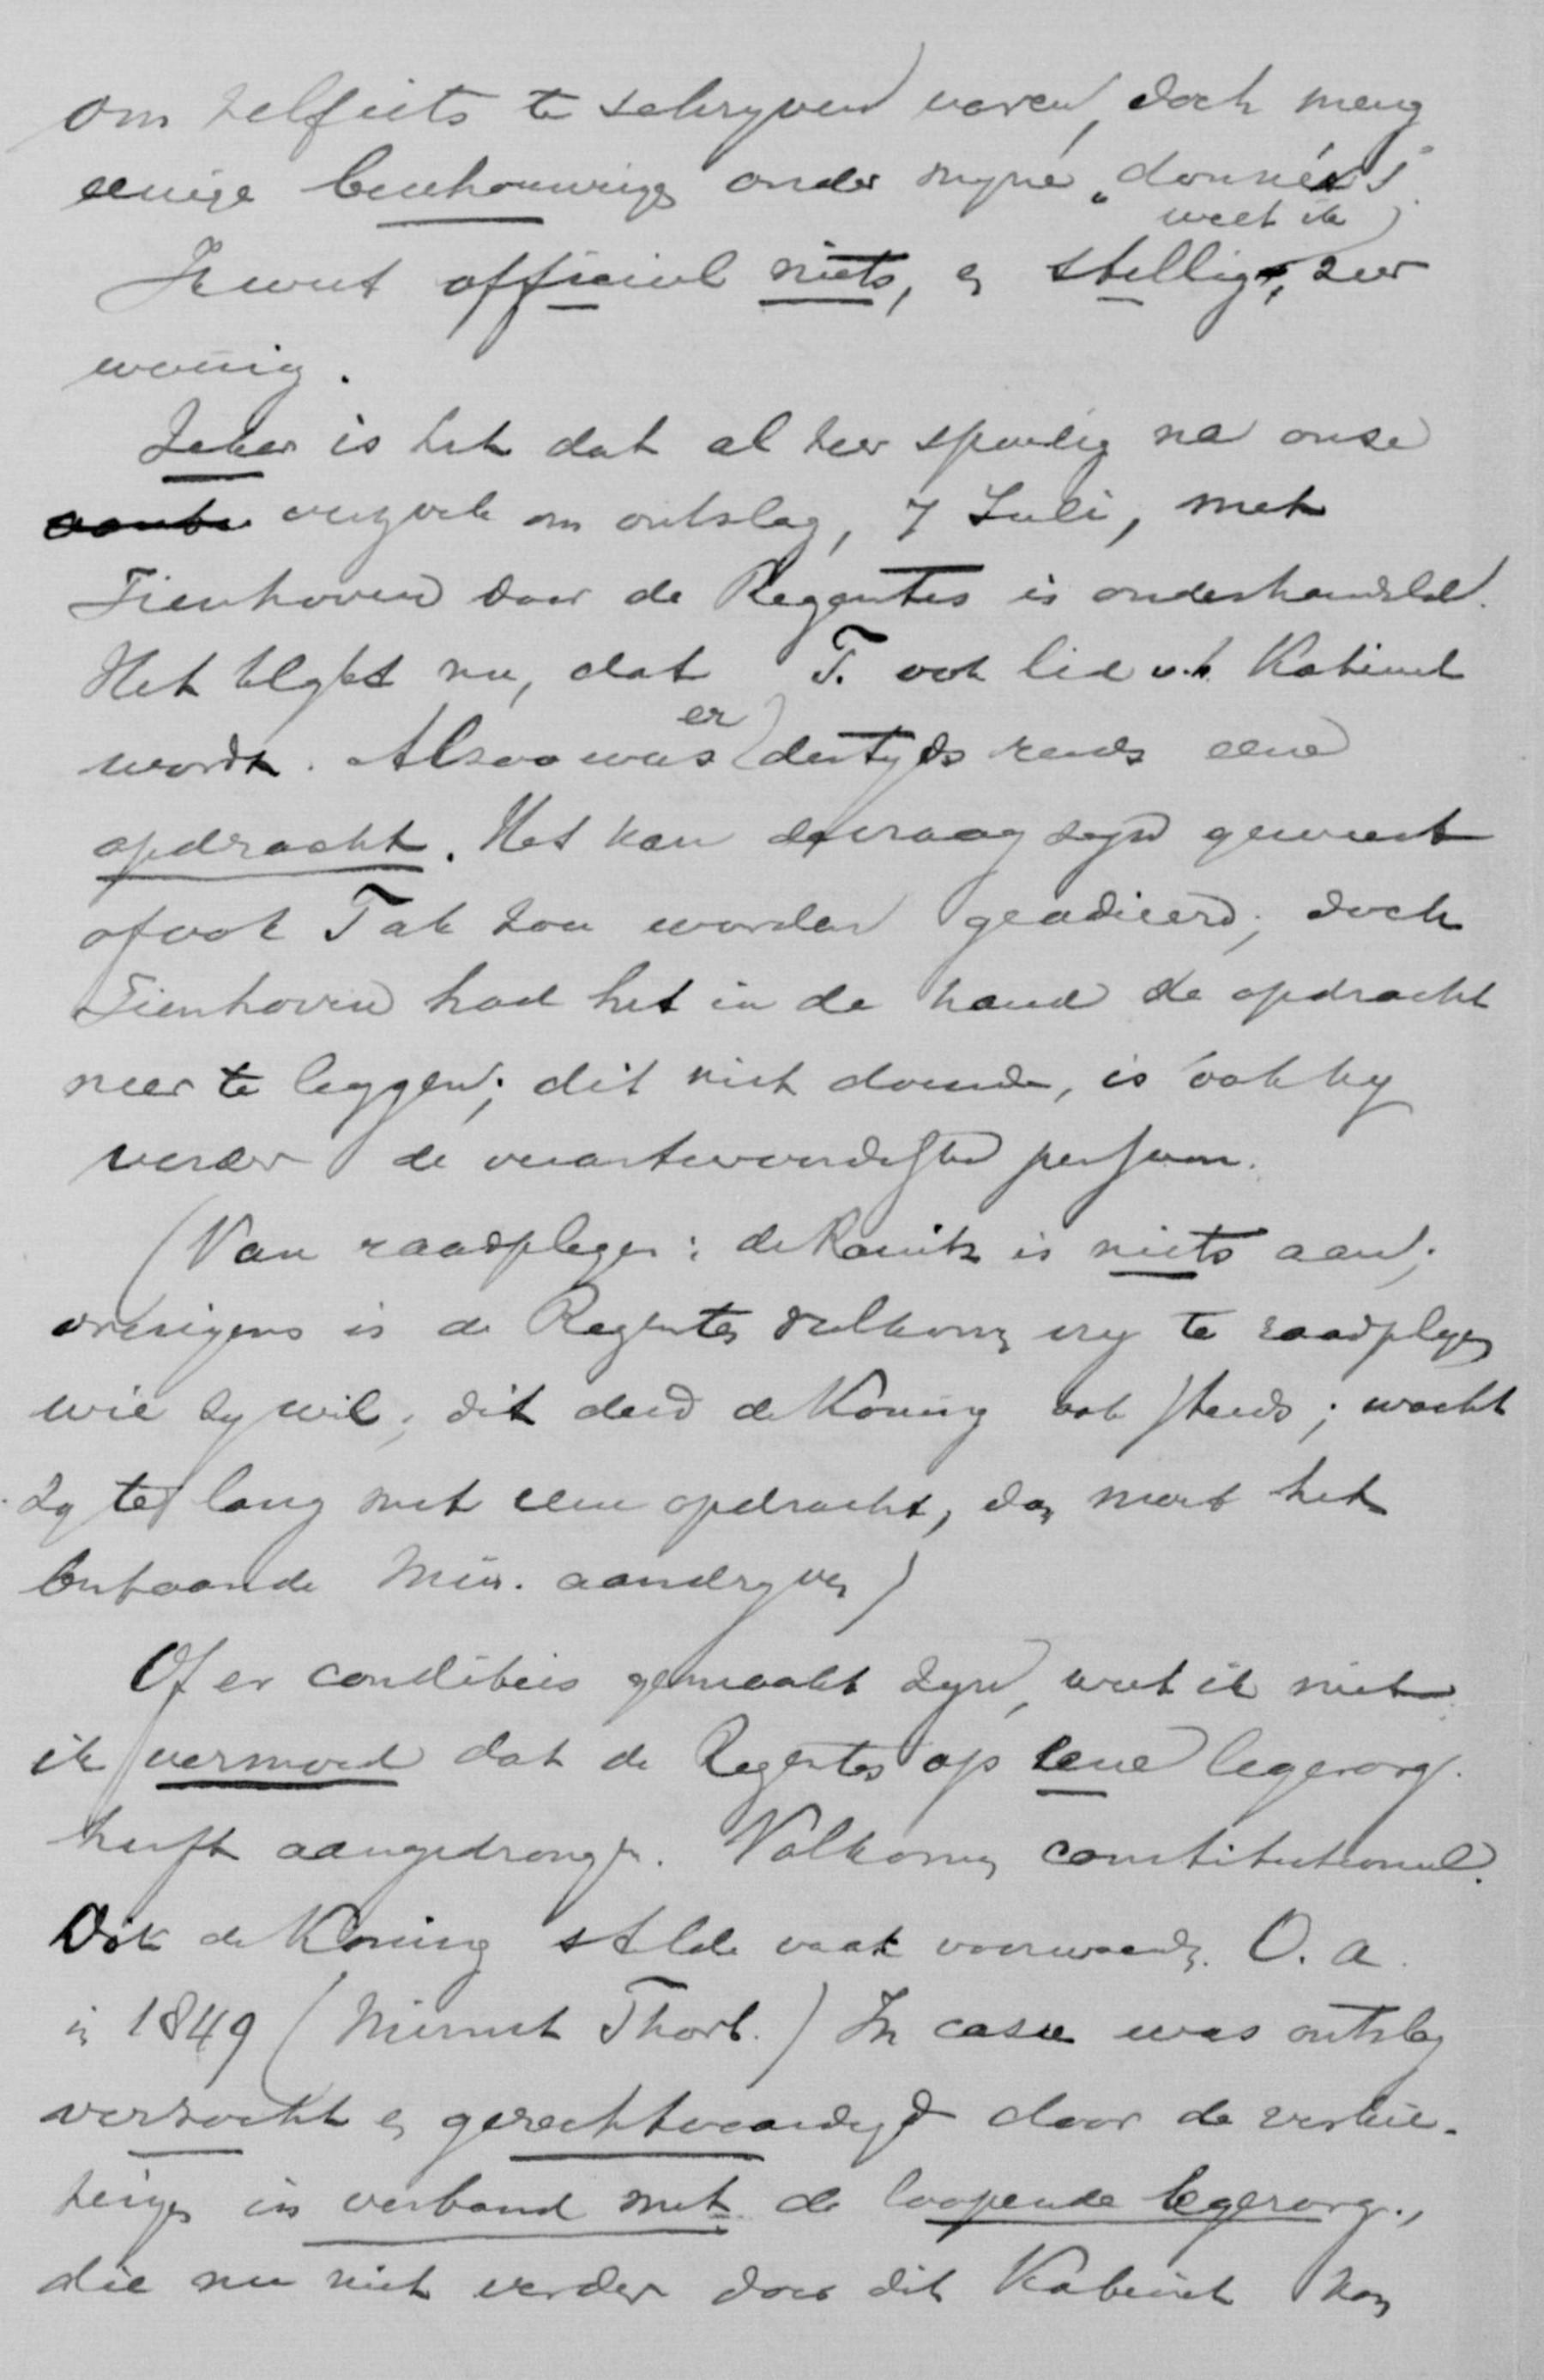 om zelf iets te schryven varen, doch meng
eenige beschouwingen onder myne "données".
Ik weet officieel niets, en stellig, weet ik zeer
weinig.
Zeker is het dat al zeer spoedig na onze
verzoek om ontslag, 7 Juli, met
Tienhoven door de Regentes is onderhandeld.
Het blykt nu, dat T. ook lid v.h. Kabinet
wordt. Alzoo was er destyds reeds eene
opdracht. Het kan de vraag zyn geweest
of ook Tak zou worden geadieerd; doch
Tienhoven had het in de hand de opdracht
neer te leggen; dit niet doende, is ook hy
verder de verantwoordelyke persoon.
(Van raadplegen: de Kanitz is niets aan;
overigens is de Regentes volkomen vry te raadplegen
wie zy wil; dit deed de Koning ook steeds; wacht
zy te lang met eene opdracht, dan moet het
bestaande Min. aandryven)
Of er condities gemaakt zyn, weet ik niet
ik vermoed dat de Regentes op eene legerorg.
heeft aangedrongen. Volkomen constitutioneel.
Ook de Koning stelde vaak voorwaarden. O. a.
in 1849 (Minist Thorb.) In casu was ontslag
verzocht en gerechtvaardigd door de verkie-
zingen in verband met de loopende legerorg.,
die nu niet verder door dit Kabinet kon